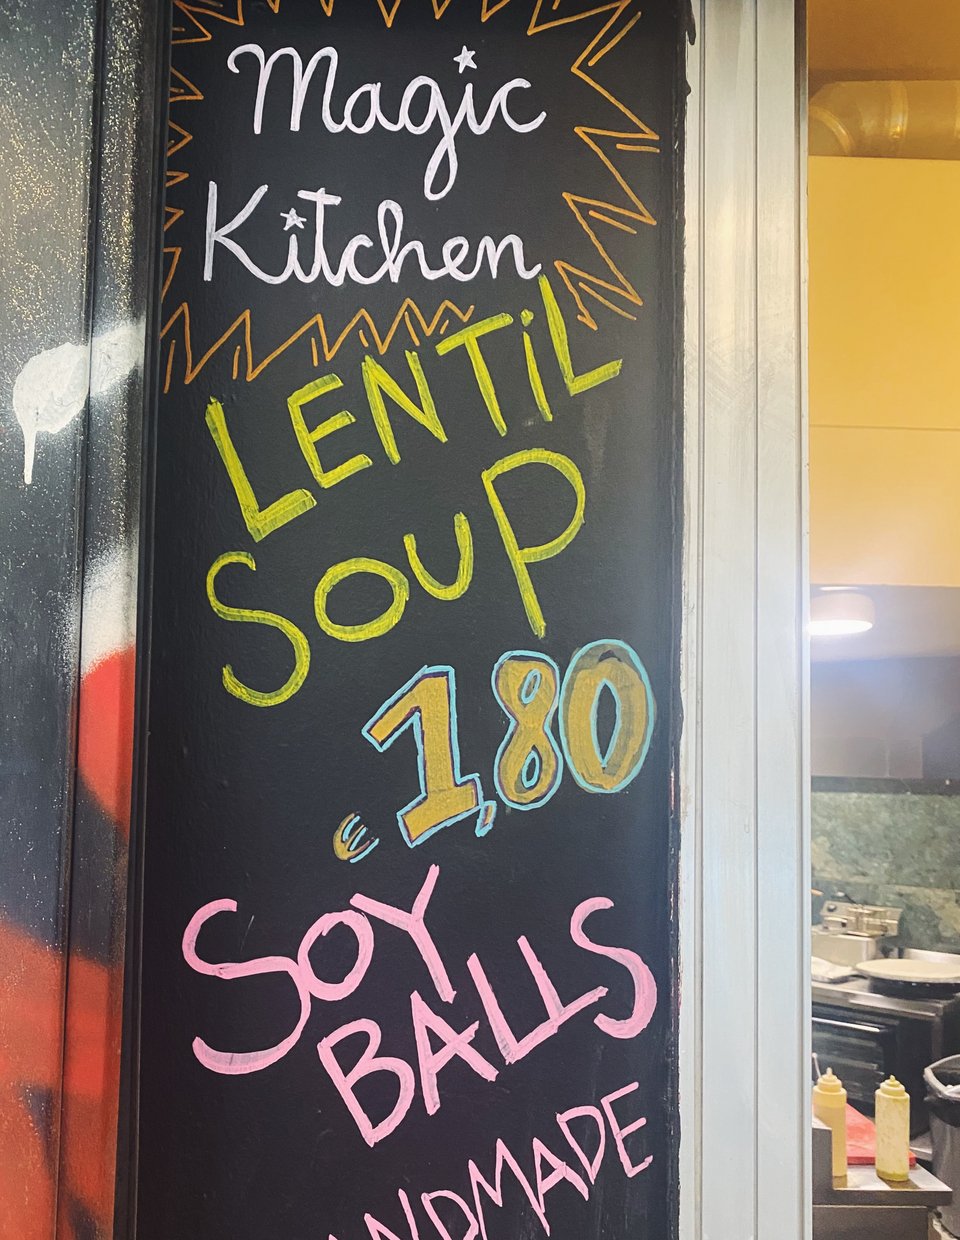 Magic
Kitchen
LENTiL
SOUP
€ 1,80
SOY
BALLS
ANDMADE